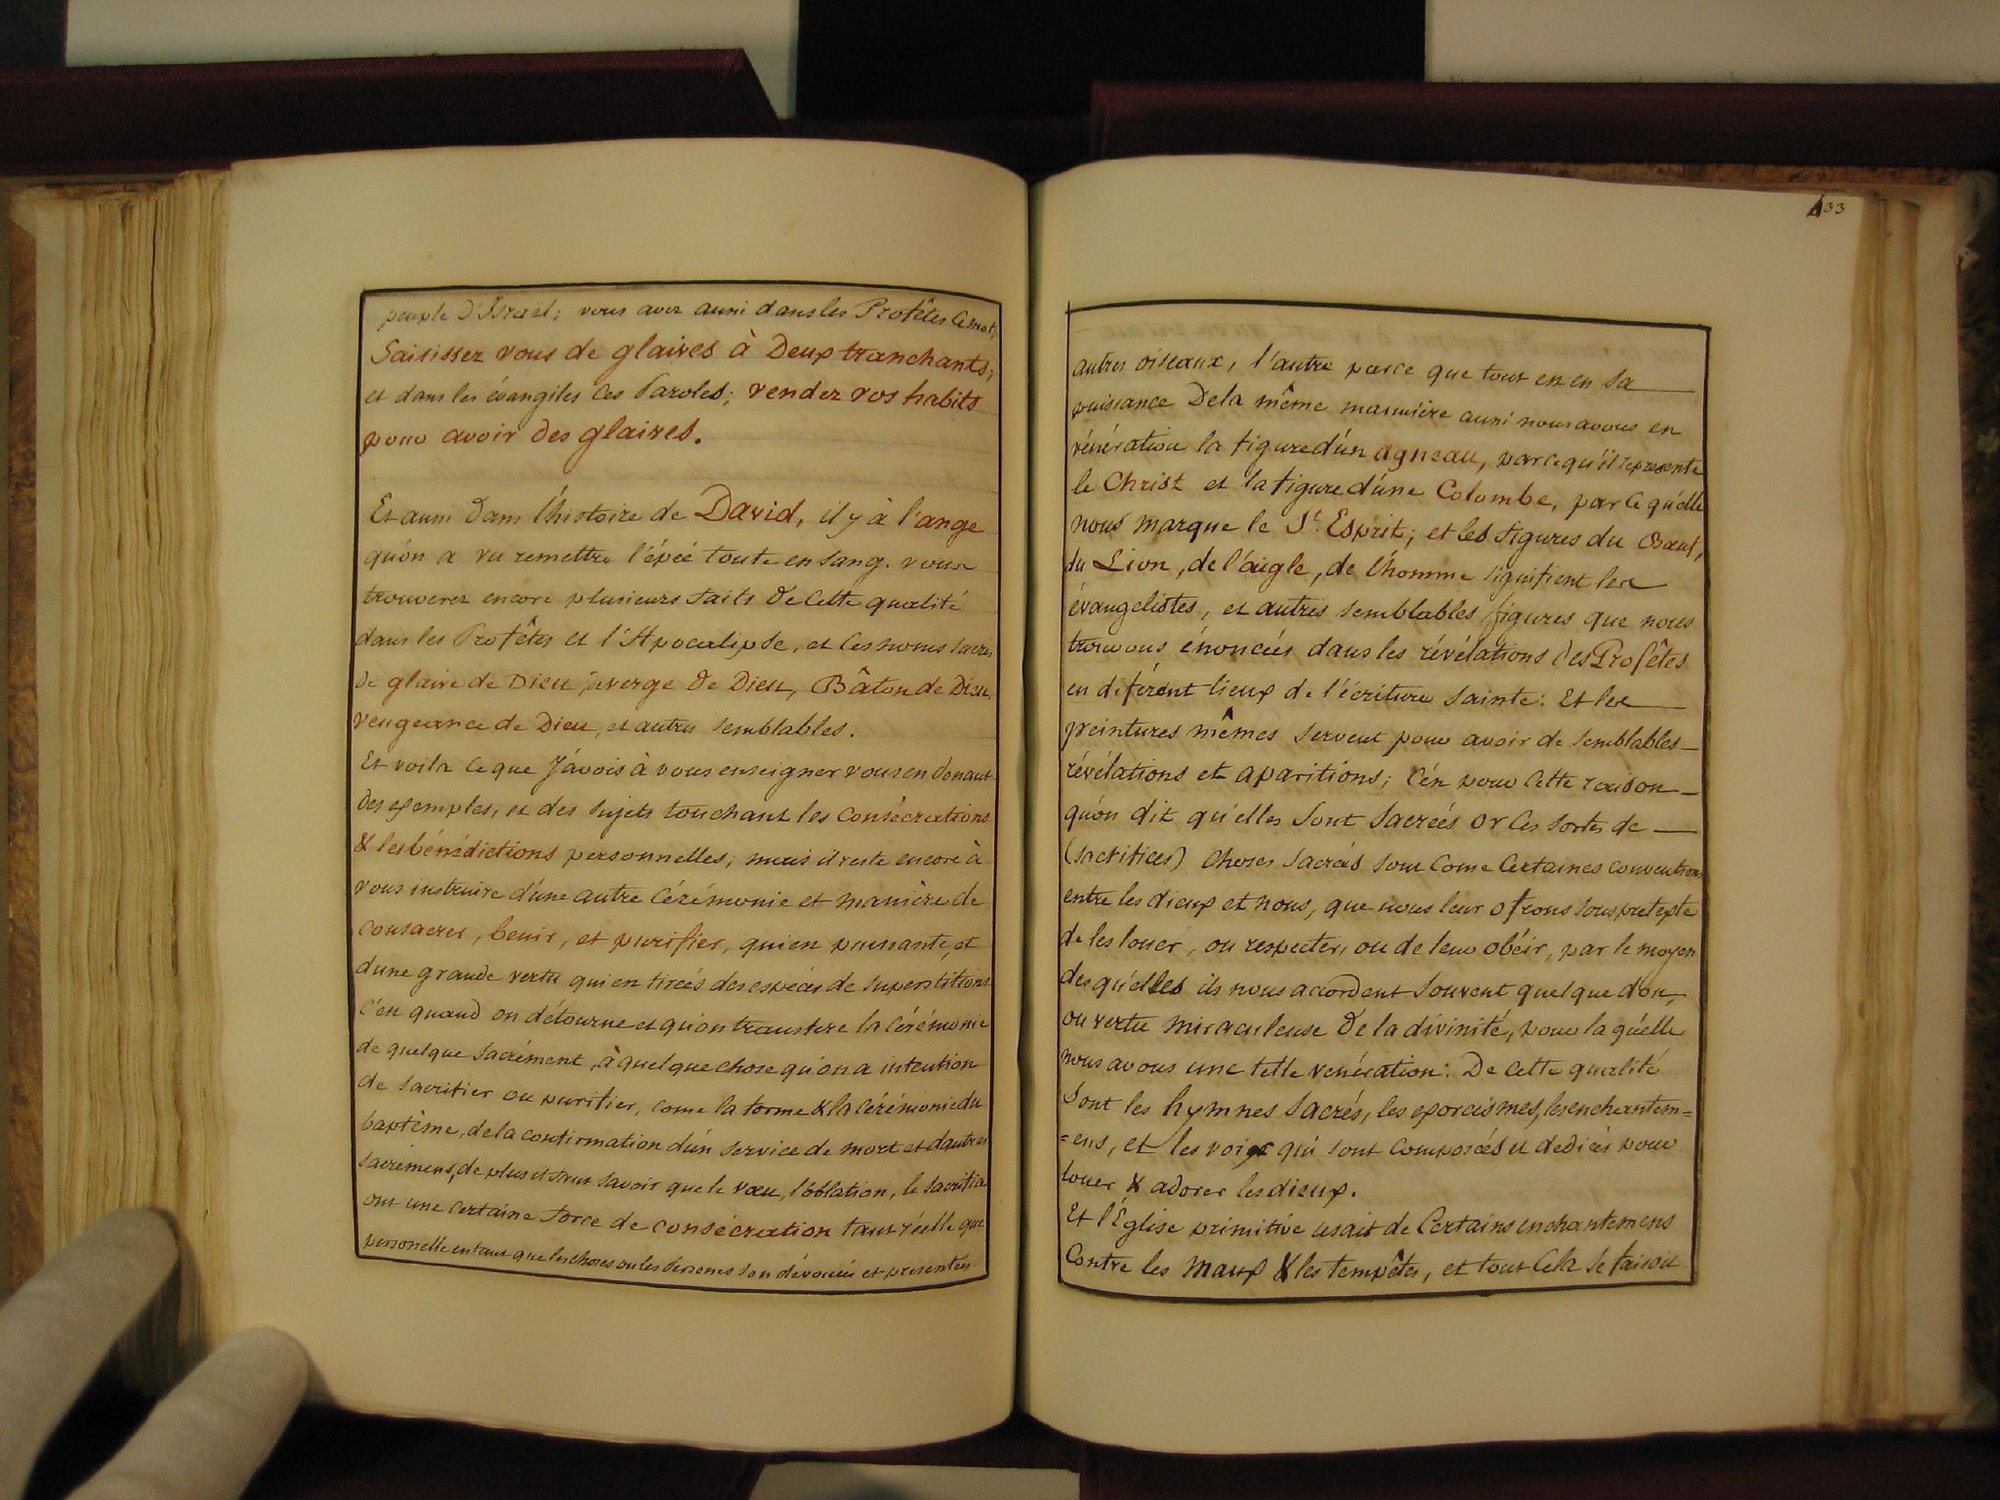 peuple d'Israël; vous avez aussi dans les Profêtes ce mot;
Saisissez vous de glaives à Deux tranchants;
et dans les évangiles ces Paroles; vendez vos habits
pour avoir des glaives.
Et aussi dans l'histoire de David, il y à l'ange
qu'on a vu remettre l'épée toute en sang. vous
trouverez encore plusieurs faits de cette qualité
dans les Profêtes et l'Apocalipse, et les noms sacrés
de glaive de Dieu, verge de Dieu, Bâton de Dieu,
vengeance de Dieu, et autres semblables.
Et voila ce que J'avois à vous enseigner vous en donant
des exemples, et des sujets touchant les Consécrations
& les bénédictions personnelles; mais il reste encore à
vous instruire d'une autre Cérémonie et manière de
consacrer, benir, et purifier, qui est puissante, et
d'une grande vertu qui est tirée des espèces de superstitions
c'est quand on détourne et qu'on transfere la Cérémonie
de quelque Sacrément, à quelque chose qu'on a intention
de sacrifier ou purifier, come la forme & la Cérémonie du
baptême, de la confirmation d'un service de mort et d'autres
sacrémens, de plus il faut savoir que le vœu, l'oblation, le sacrifice
ont une certaine force de consécration tant réelle que
personelle en tant que les choses ou les persones son dévouées et présentées
33
autres oiseaux, l'autre parce que tout est en sa
puissance De la même mannière aussi nous avons en
vénération la figure d'un agneau, parce qu'il represente
le Christ et la figure d'une Colombe, par ce qu'elle
nous marque le St. Esprit; et les figures du Bœuf,
du Lion, de l'aigle, de l'homme signifient les
évangelistes, et autres semblables figures que nous
trouvons énoncées dans les révélations des Profêtes
en diférent lieux de l'écriture sainte: Et les
peintures mêmes servent pour avoir de semblables
révélations et aparitions; C'est pour cette raison
qu'on dit qu'elles sont sacreés or ces sortes de
(sacrifices) choses sacrées sont come Certaines conventions
entre les dieux et nous, que nous leur ofrons sous pretexte
de les louer, ou respecter, ou de leur obéir, par le moyen
desqu'elles ils nous accordent souvent quelque don,
ou vertu miraculeuse de la divinité, pour la qu'elle
nous avons une telle vénération: De cette qualité
Sont les hymnes sacrés, les exorcismes, les enchantem=
=ens, et les voix qui sont composées et dediées pour
louer & adorer les dieux.
Et l'Église primitive usait de Certains enchantemens
Contre les maux & les tempêtes, et tout cela se faisoit